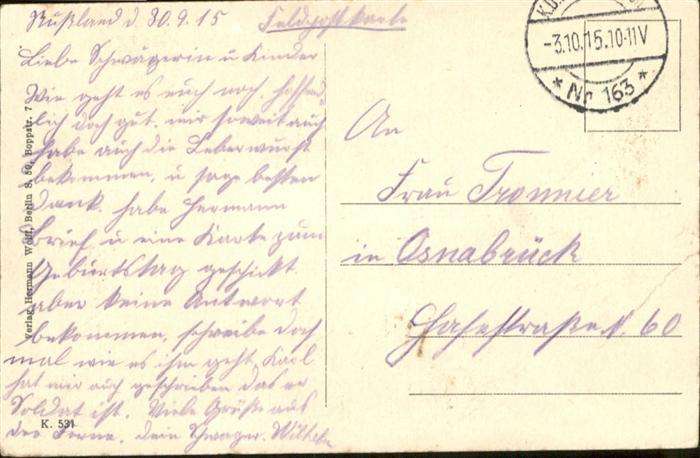 Rußland d. 30.9.15 Feldpostkarte
Liebe Schwägerin u Kinder
Wie geht es euch noch, hoffend
lich doch gut. mir soweit auch
habe auch die Leberwurst
bekommen, u sage besten
Dank. habe Hermann
Brief u eine Karte zum
Geburtstag geschickt
aber keine Antwort
bekommen, schreibe doch
mal wie es ihm geht, Karl
hat mir auch geschrieben das er
Soldat ist. Viele Grüße aus
der Ferne. dein Schwager. Wilhelm
K. 531
Verlag Hermann Wolff, Berlin S. 59, Boppstr. 7
-3.10.15.10-11V
* Nr 163 *
An
Frau Tronnier
in Osnabrück
Hasestraße N. 60